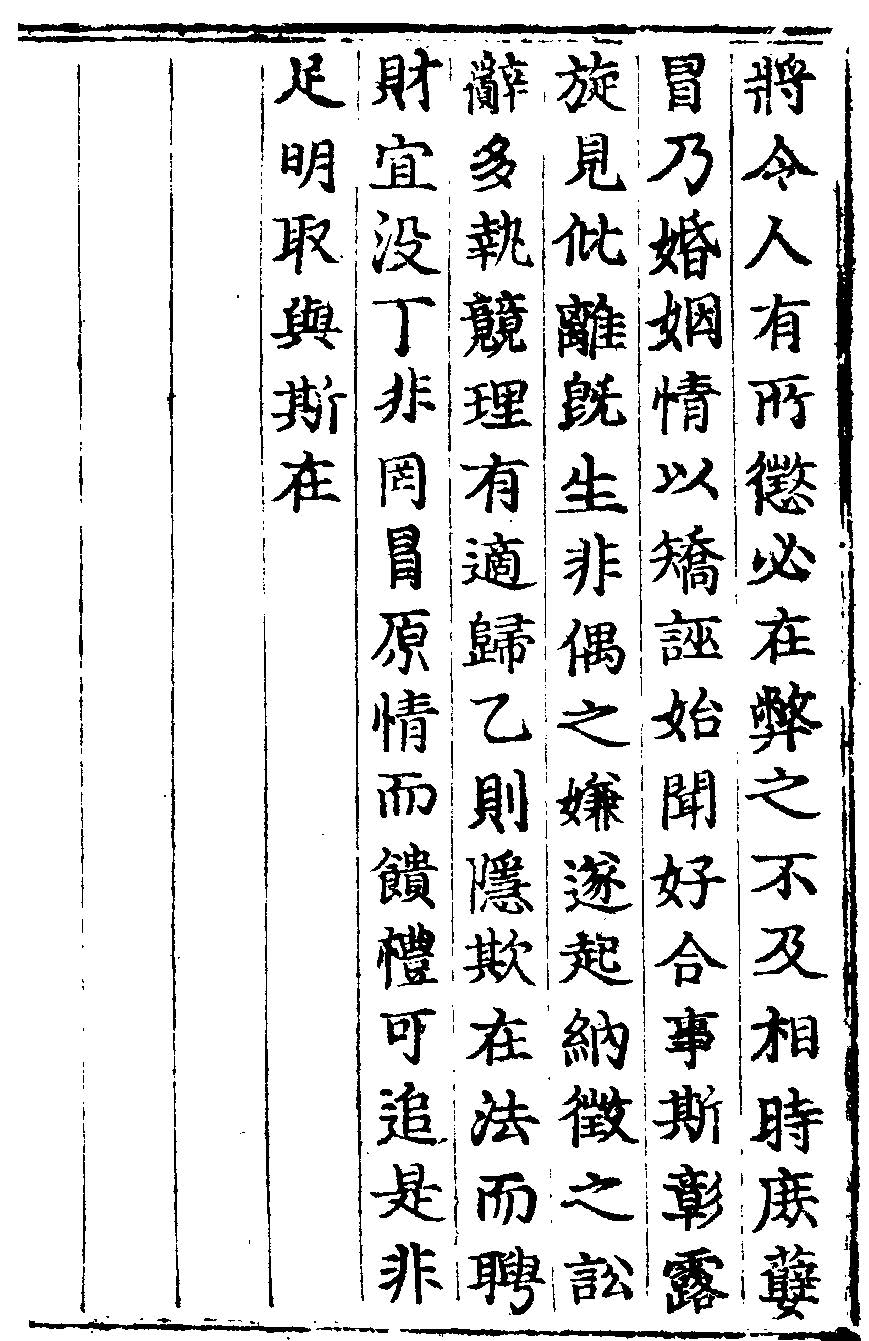 將令人有所懲必在弊之不及相時庶孽
冒乃婚姻情以矯誣始聞好合事斯彰露
旋見仳離旣生非偶之嫌遂起納徵之訟
辭多執競理有適歸乙則隱欺在法而聘
財宜没丁非罔冒原情而饋禮可追是非
足明取與斯在